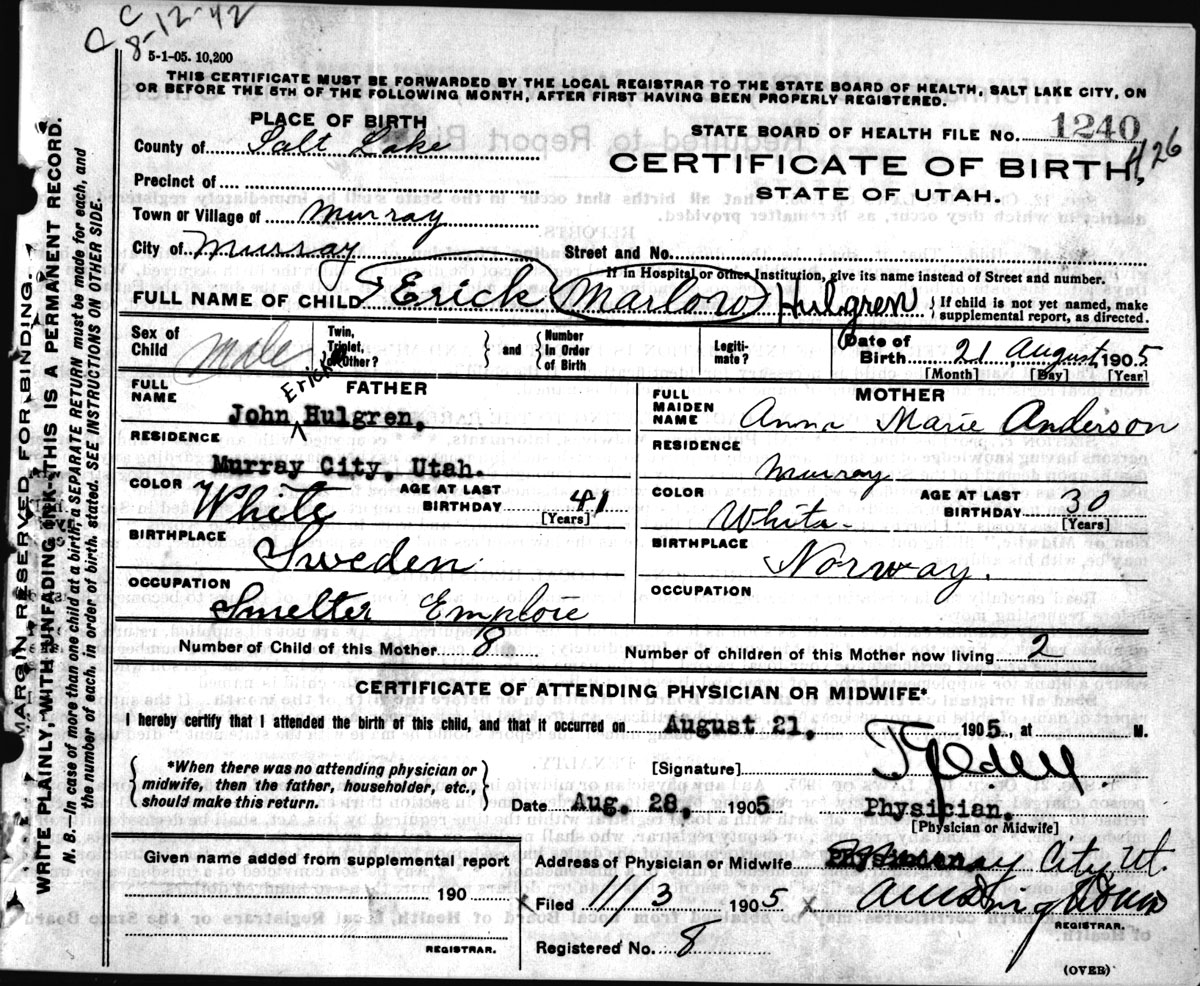 C C
8-12-42
5-1-05. 10,200
THIS CERTIFICATE MUST BE FORWARDED BY THE LOCAL REGISTRAR TO THE STATE BOARD OF HEALTH, SALT LAKE CITY, ON
OR BEFORE THE 5TH OF THE FOLLOWING MONTH, AFTER FIRST HAVING BEEN PROPERLY REGISTERED.
PLACE OF BIRTH
STATE BOARD OF HEALTH FILE No. 1240
County of Salt Lake
CERTIFICATE OF BIRTH
STATE OF UTAH.
Precinct of
Town or Village of Murray
City of Murray Street and No.
If in Hospital or other Institution, give its name instead of Street and number.
FULL NAME OF CHILD Erick Marlow Hulgren { If child is not yet named, make
supplemental report, as directed.
Sex of Child Male Twin, Triplet, or Other? and Number in Order of Birth Legiti-mate? Date of Birth 21 August, 1905
[Month] [Day] [Year]
FULL NAME FATHER
Erick
John Hulgren.
RESIDENCE
Murray City, Utah.
COLOR White AGE AT LAST BIRTHDAY 41
[Years]
BIRTHPLACE
Sweden
OCCUPATION
Smelter Emploie
FULL MAIDEN NAME MOTHER
Anna Marie Anderson
RESIDENCE
Murray
COLOR White AGE AT LAST BIRTHDAY 30
[Years]
BIRTHPLACE
Norway.
OCCUPATION
Number of Child of this Mother 8 Number of children of this Mother now living 2
CERTIFICATE OF ATTENDING PHYSICIAN OR MIDWIFE*
I hereby certify that I attended the birth of this child, and that it occurred on August 21, 1905, at M.
{ *When there was no attending physician or
midwife, then the father, householder, etc.,
should make this return. }
[Signature]
Date Aug. 28. 1905. Physician.
[Physician or Midwife]
Given name added from supplemental report
190
REGISTRAR.
Address of Physician or Midwife Physician Murray City, Ut.
x Filed 11/3 1905 x
REGISTRAR.
Registered No. 8
(OVER)
MARGIN RESERVED FOR BINDING.
WRITE PLAINLY, WITH UNFADING INK—THIS IS A PERMANENT RECORD.
N. B. In case of more than one child at a birth, a SEPARATE RETURN must be made for each, and
the number of each, in order of birth, stated. SEE INSTRUCTIONS ON OTHER SIDE.